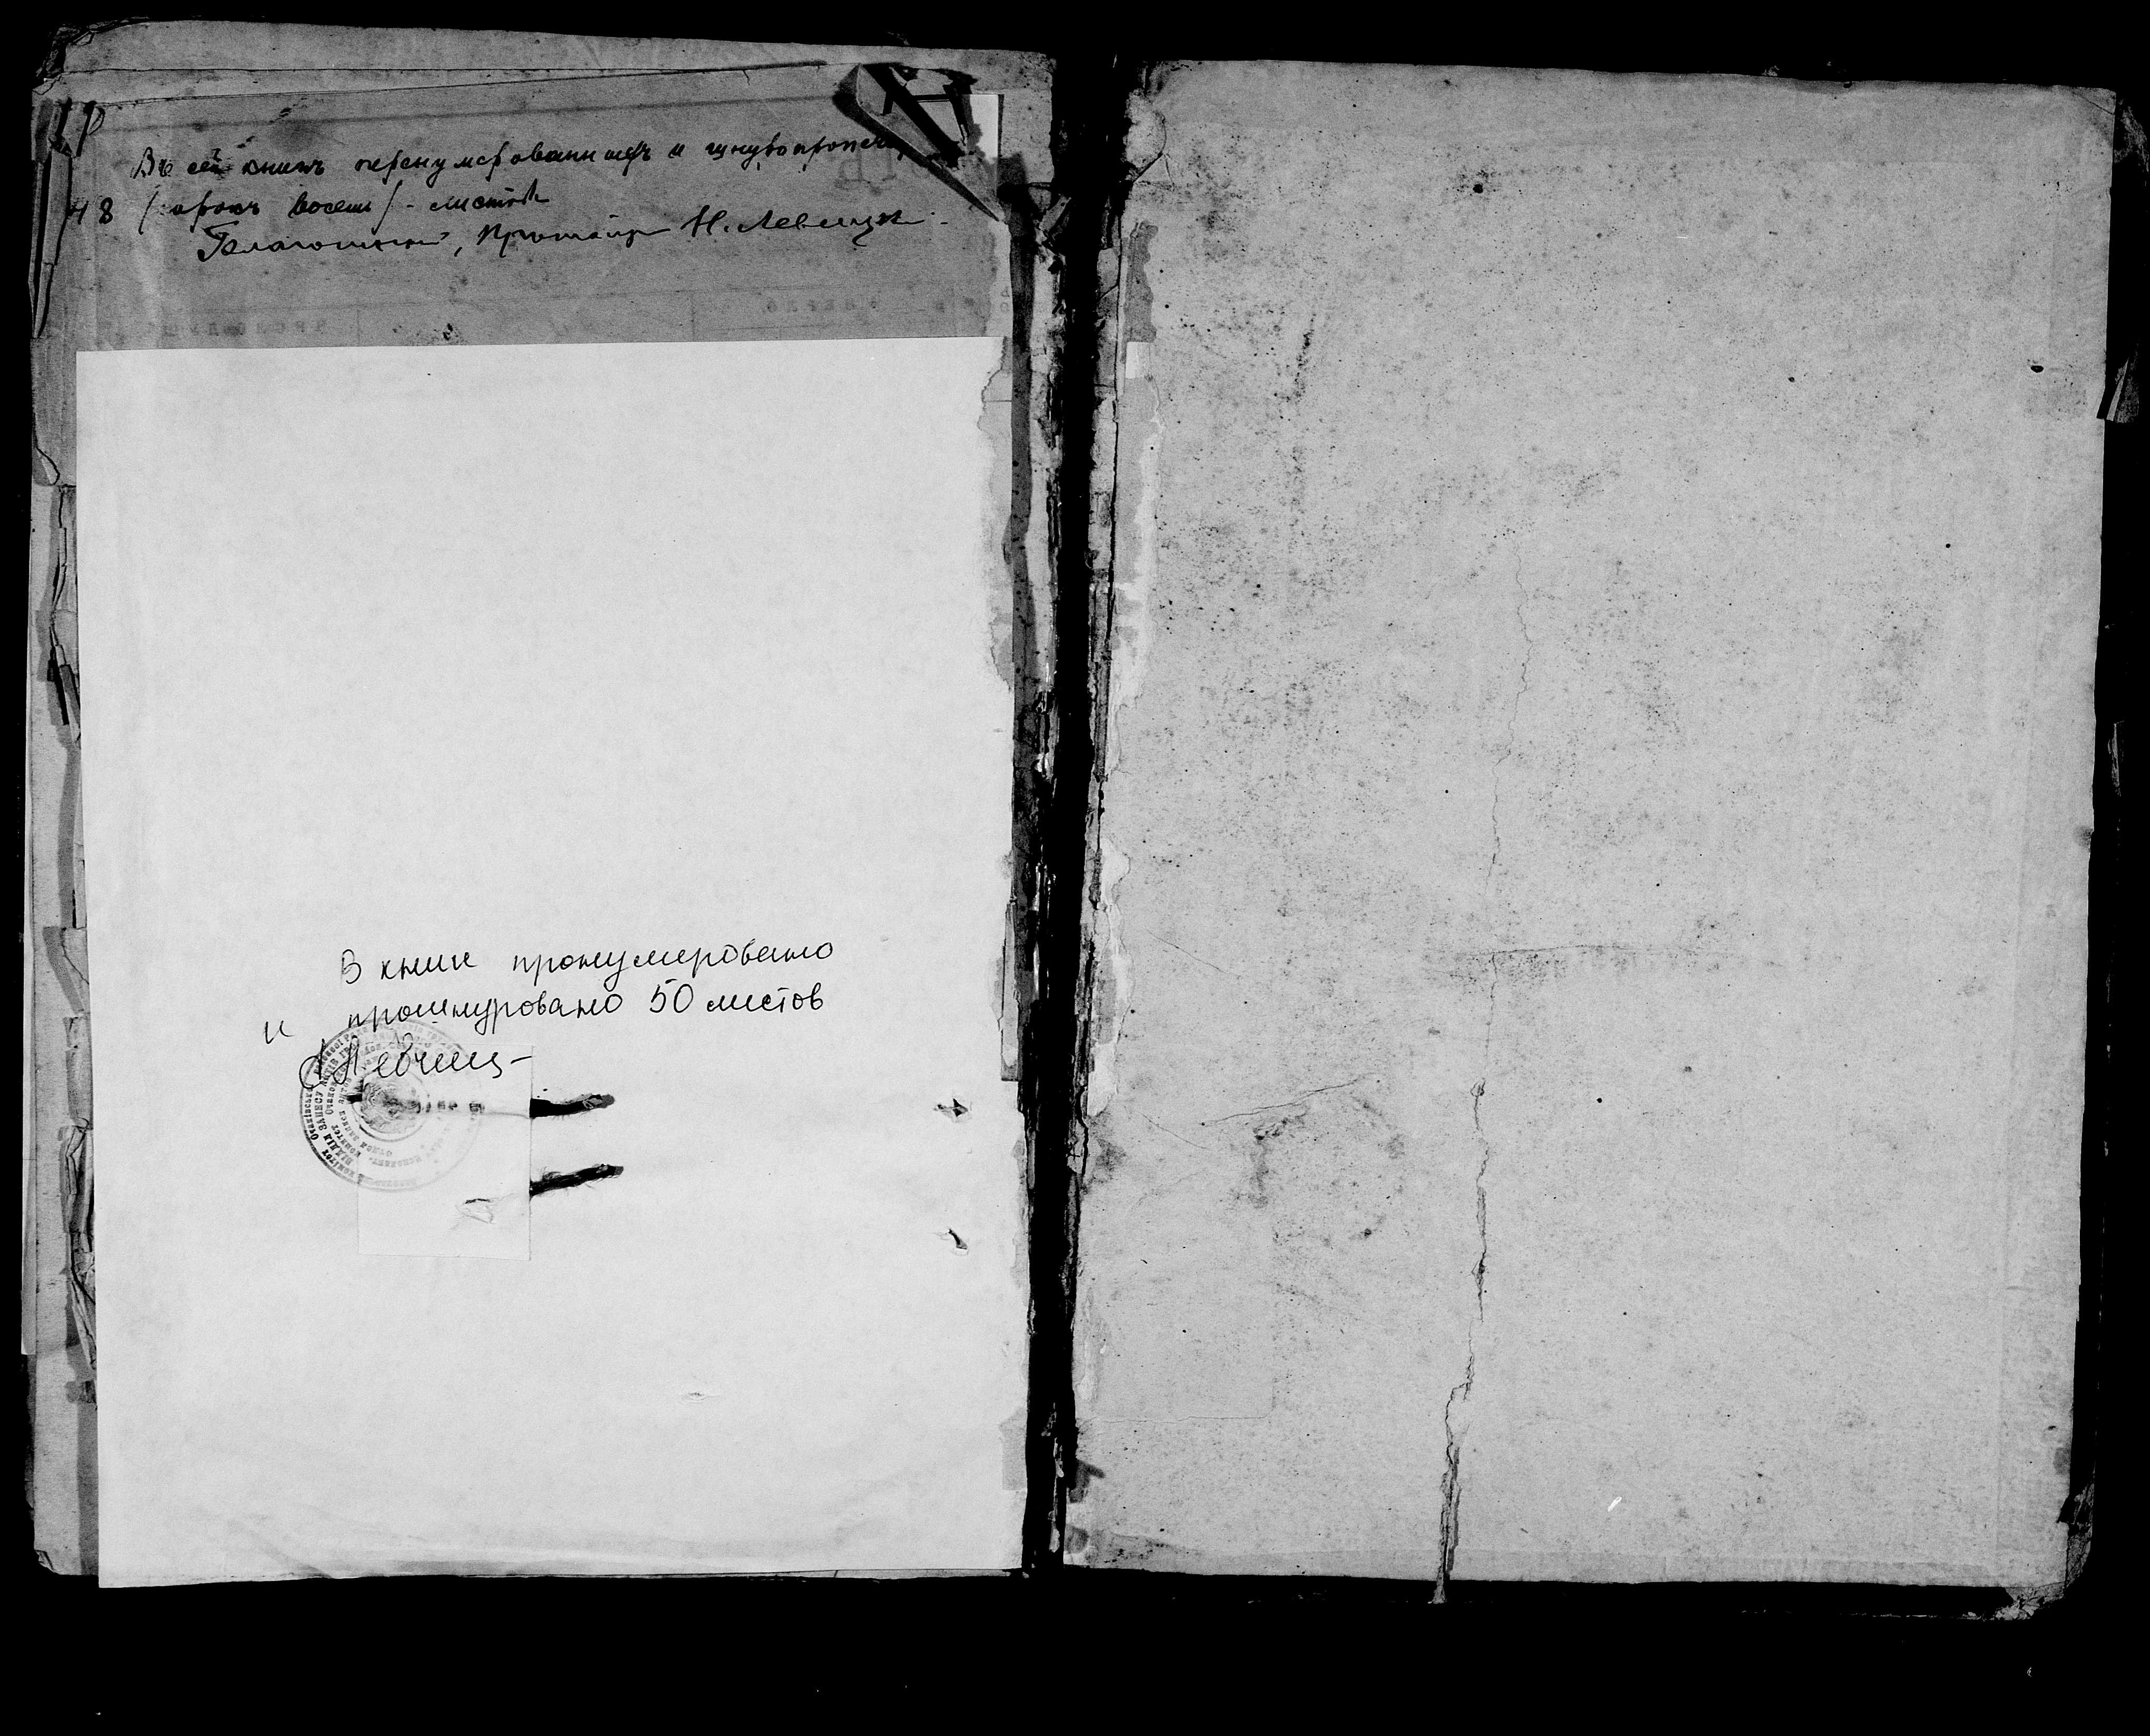 Въ сей книгѣ перенумерованныхъ и шнуропропеча
48 /сорокъ восемь/ - листовъ
Благочинный, Протоіерей Н. Левицкій
В книге пронумеровано
и прошнуровано 50 листов